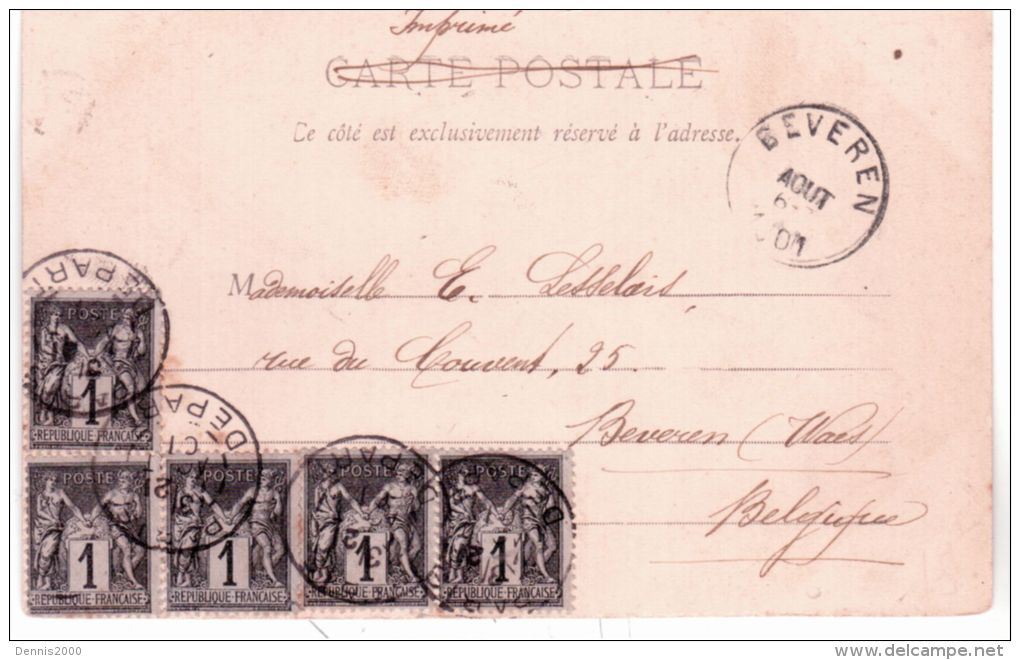 Imprimé
CARTE POSTALE
Ce côté est exclusivement réservé à l'adresse.
BEVEREN
AOUT
Mademoiselle E. Lesselais
rue du Couvent, 25.
Beveren (Waes)
Belgique
POSTE
1
REPUBLIQUE FRANCAISE
DEPART
POSTE
1
REPUBLIQUE FRANCAISE
POSTE
1
REPUBLIQUE FRANCAISE
DEPART
POSTE
1
REPUBLIQUE FRANCAISE
DEPART
POSTE
1
REPUBLIQUE FRANCAISE
DEPART
Dennis2000
delcampe.net